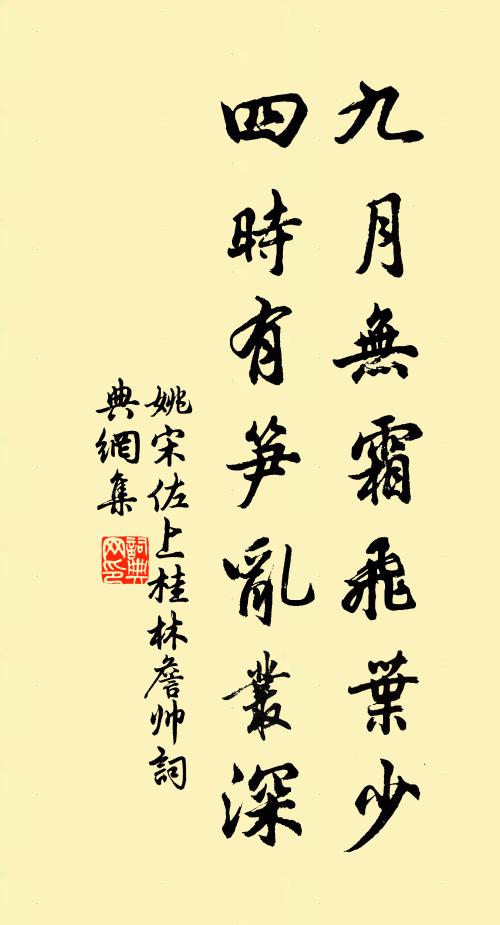 九月無霜飛葉少
四時有笋亂叢深
姚宋佐上桂林詹帅詞
典網集
詞典
网印